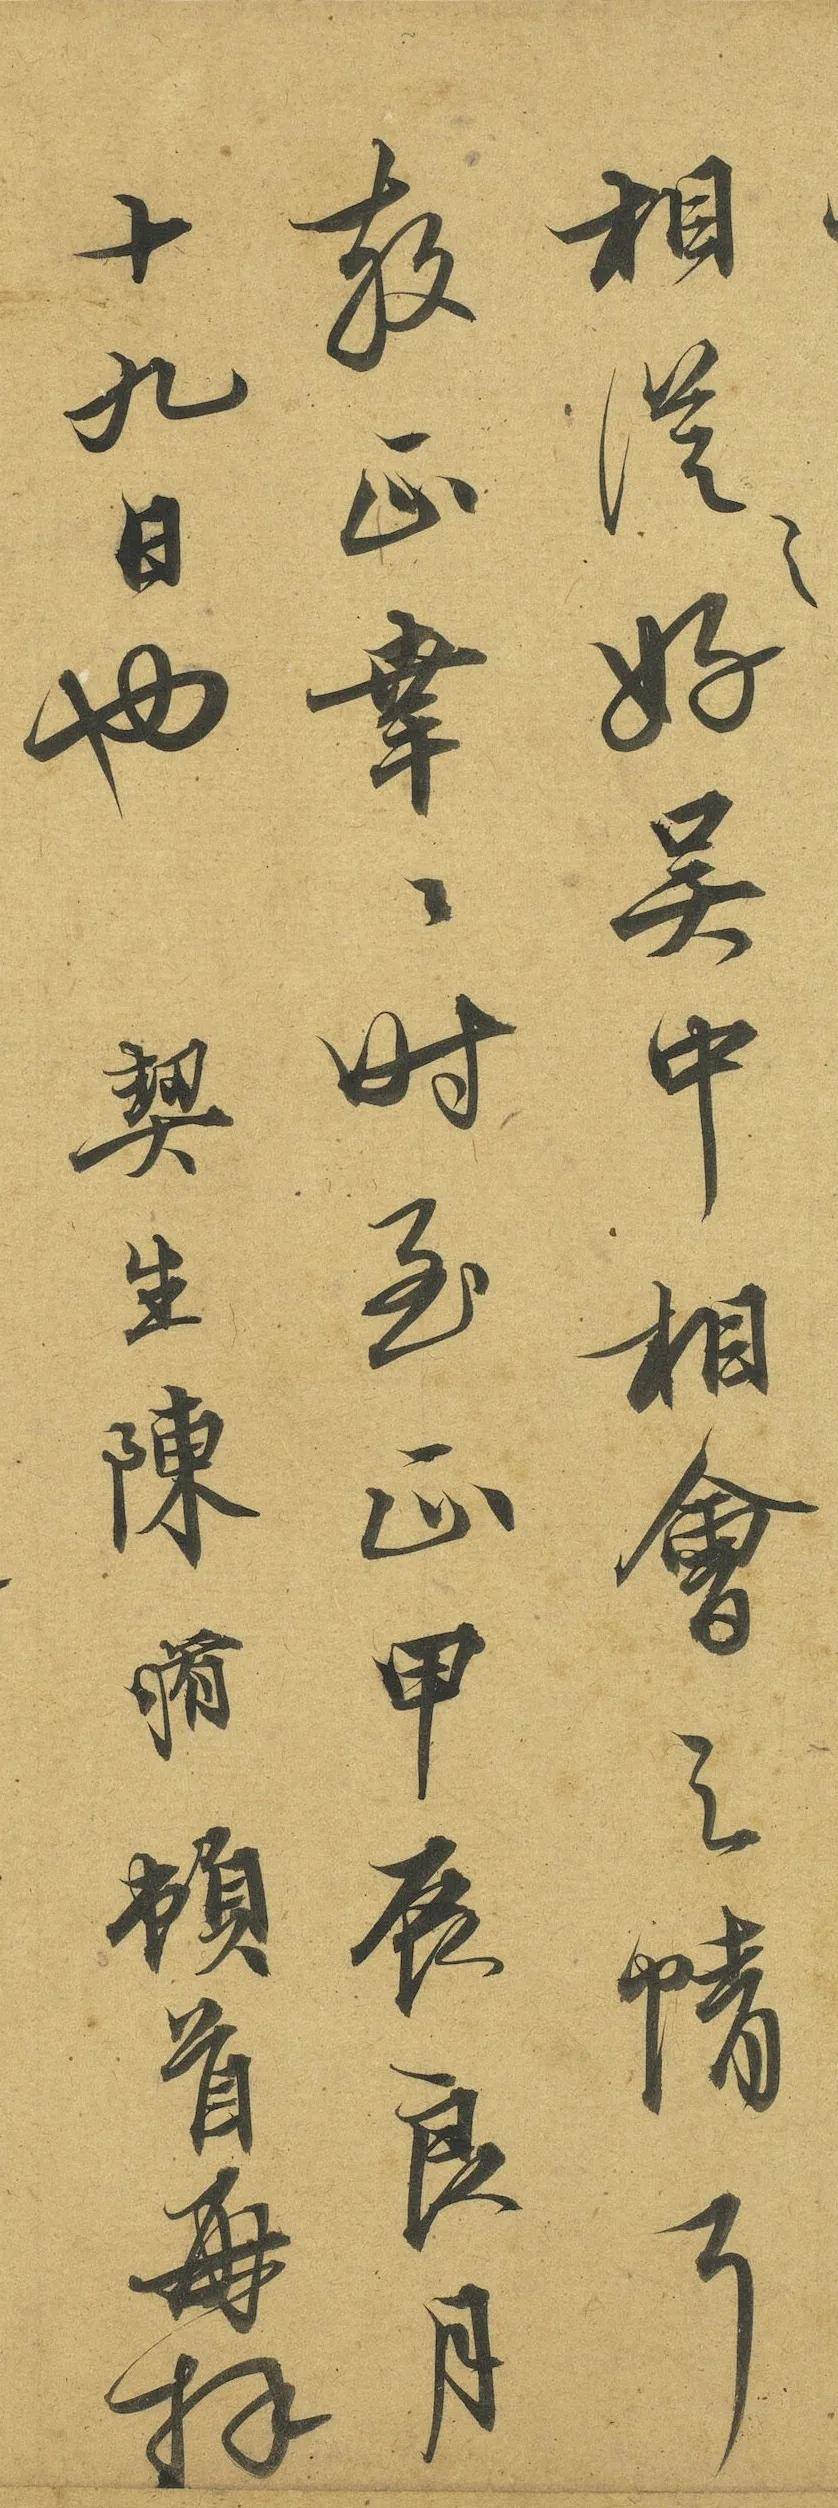 相從之好吳中相會之情耳
教正幸〻时至正甲辰良月
十九日也 契生陳 頓首再拜